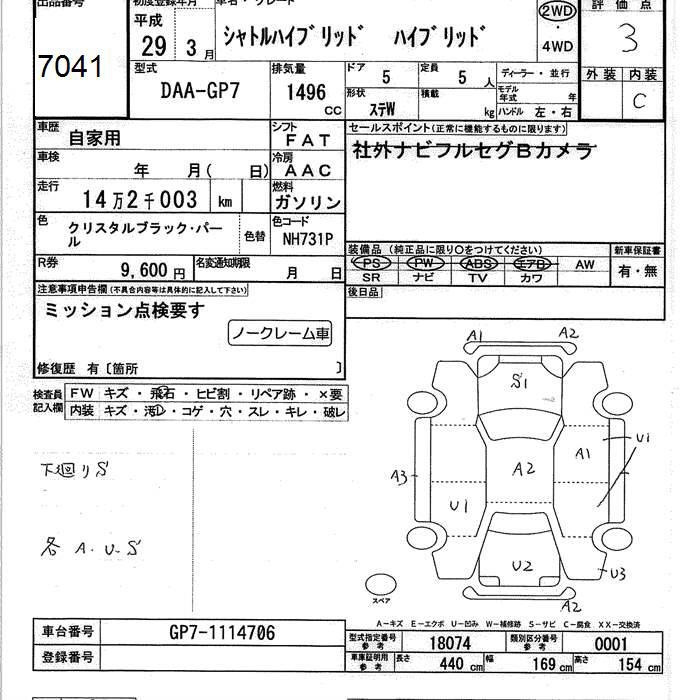 出品番号
7041
初度登録年月
平成
29 3月
車名・グレード
シャトルハイブリッド ハイブリッド
2WD
・
4WD
評価点
3
外装 内装
C
型式
DAA-GP7
排気量
1496
cc
ドア
5
定員
5 人
形状
ステW
積載
kg
ディーラー・並行
モデル年式 年
ハンドル 左・右
車歴
自家用
シフト
FAT
車検
年 月( 日)
冷房
AAC
走行
14万2千003 km
燃料
ガソリン
色
クリスタルブラック・パール
色替
色コード
NH731P
R券
9,600円
名変通知期限
月 日
セールスポイント(正常に機能するものに限ります)
社外ナビフルセグBカメラ
装備品 (純正品に限り○をつけてください)
PS PW ABS エアB AW
SR ナビ TV カワ
新車保証書
有・無
後日品
注意事項申告欄(不具合内容等は具体的に記入して下さい)
ミッション点検要す
ノークレーム車
修復歴 有〔箇所 〕
検査員
記入欄
FW キズ・飛石・ヒビ割・リペア跡・×要
内装 キズ・汚レ・コゲ・穴・スレ・キレ・破レ
下廻りS
各 A・U・S
A1 A2
S1
U1
A1
A3
A2
U1
U2
U3
A2
スペア
A-キズ E-エクボ U-凹み W-補修跡 S-サビ C-腐食 XX-交換済
車台番号
GP7-1114706
登録番号
型式指定番号
参考
18074
類別区分番号
参考
0001
車庫証明用
参考
長さ 440 cm 幅 169 cm 高さ 154 cm